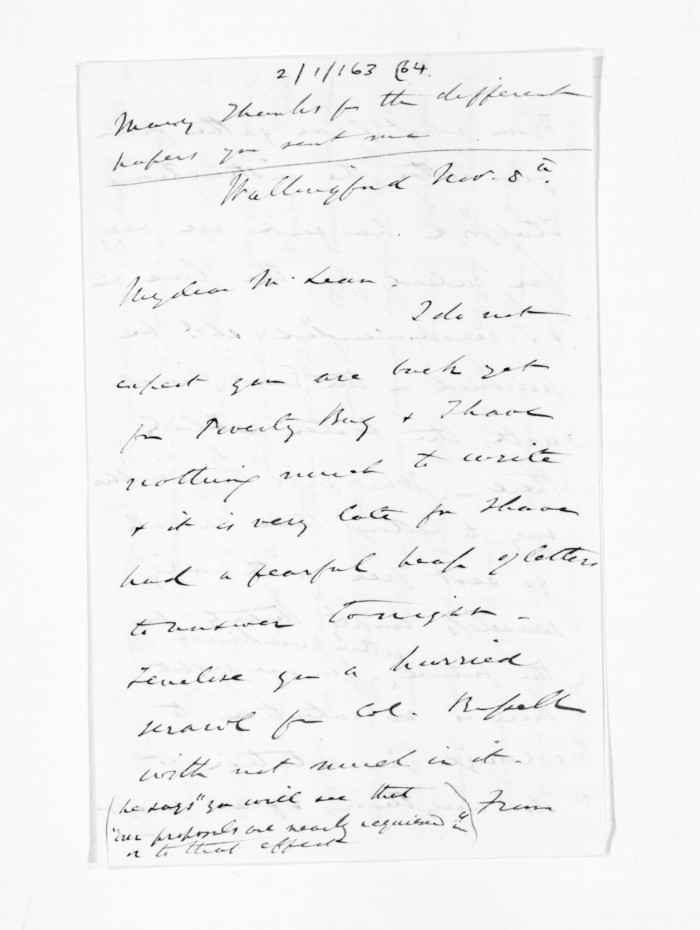 2/1/163 64.
Many Thanks for the different
papers you sent me
Wallingford Nov. 8th.
My dear McLean
I do not
expect you are back yet
fm Poverty Bay & I have
nothing much to write
& it is very late for I have
had a fearful heap of letters
to answer tonight -
I enclose you a hurried
scrawl fm Col. Russell
with not much in it.
(he says "you will see that
"our proposals are nearly acquiesced in"
or to that effect)
From